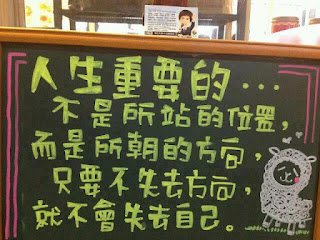 人生重要的…
不是所站的位置，
而是所朝的方向，
只要不失去方向，
就不會失去自己。